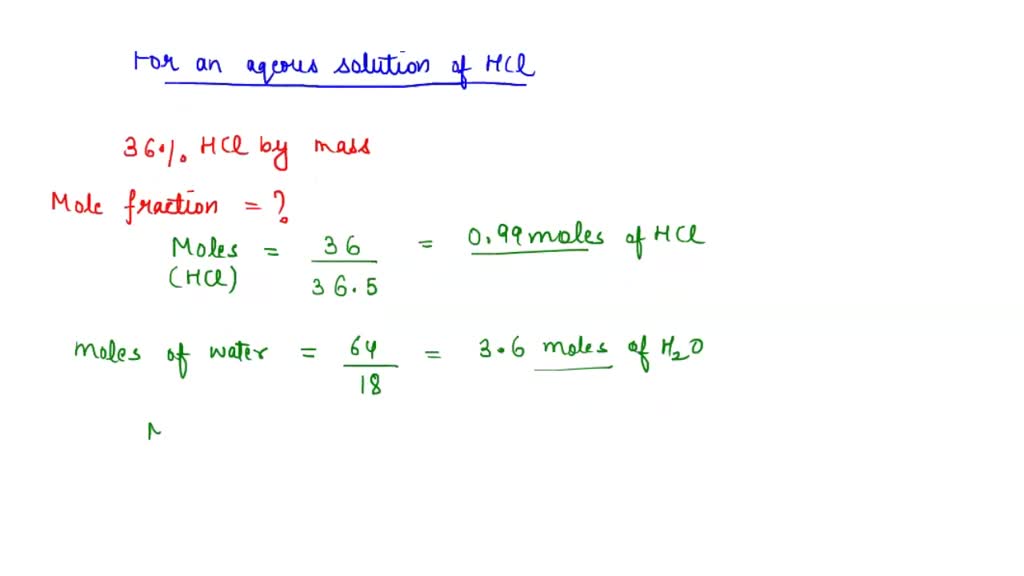 For an aqeous solution of HCl
36% HCl by mass
Mole fraction = ?
Moles (HCl) = 36 / 36.5 = 0.99 moles of HCl
moles of water = 64 / 18 = 3.6 moles of H₂O